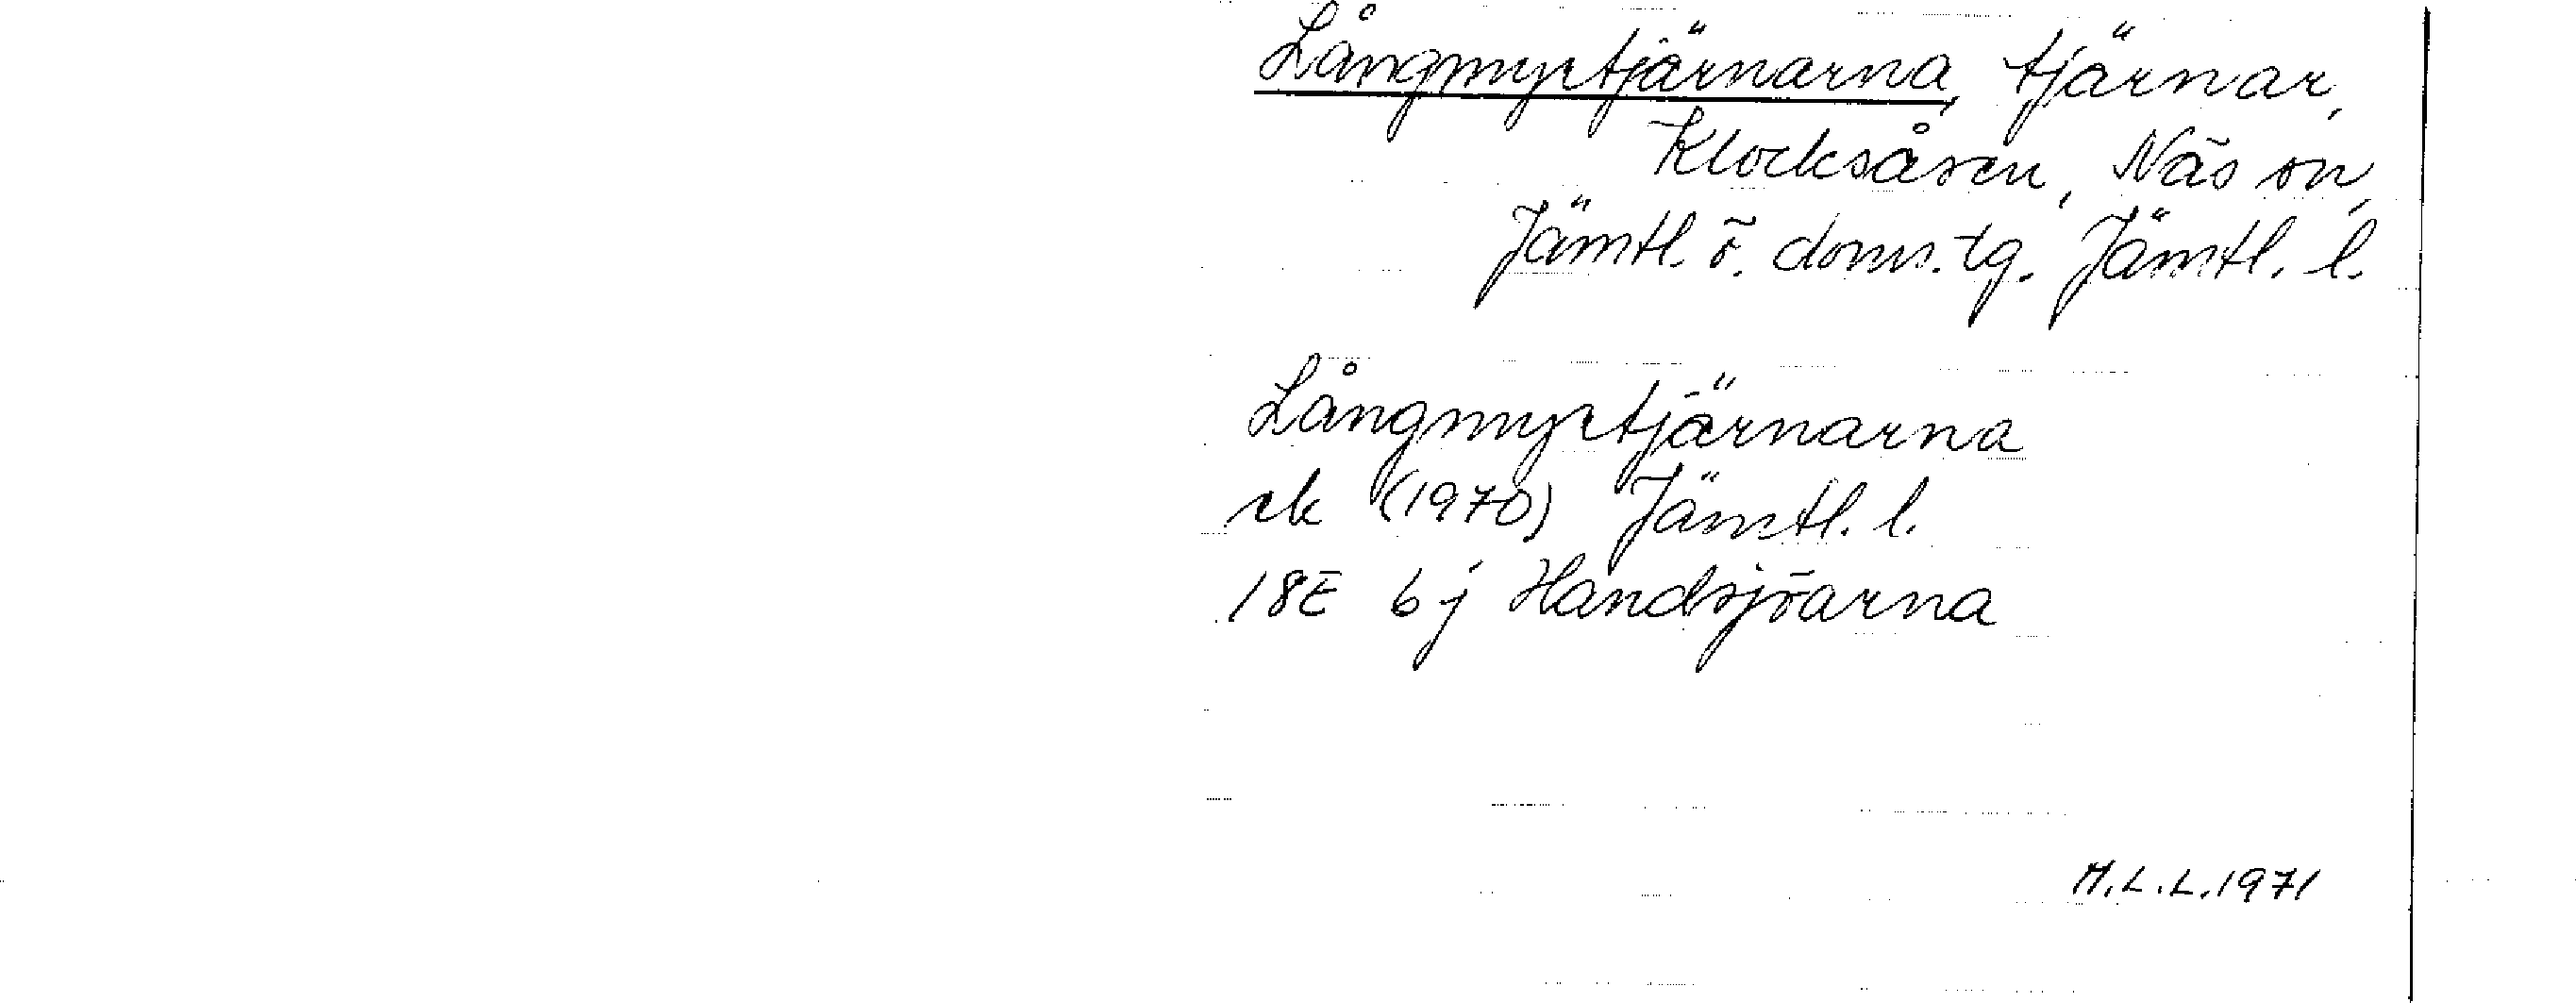 Långmyrtjärnarna, tjärnar,
Klocksåsen, Näs sn,
Jämtl. ö. doms. tg. Jämtl. l.
Långmyrtjärnarna
rk (1970) Jämtl. l.
18E 6j Handsjöarna
M.L.L. 1971